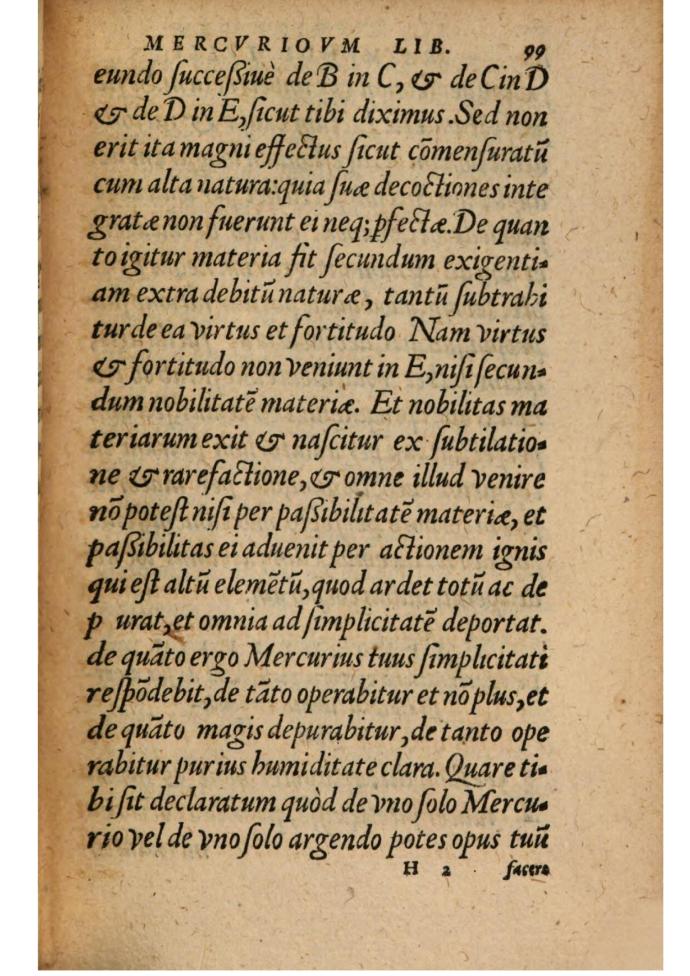 MERCVRIOVM LIB. 99
eundo ſucceſſiuè de B in C, & de C in D
& de D in E, ſicut tibi diximus. Sed non
erit ita magni effectus ſicut cōmenſuratū
cum alta natura: quia ſuæ decoctiones inte
gratæ non fuerunt ei neq; pfectæ. De quan
to igitur materia fit ſecundum exigenti-
am extra debitū naturæ, tantū ſubtrahi
tur de ea virtus et fortitudo Nam virtus
& fortitudo non veniunt in E, niſi ſecun-
dum nobilitatē materiæ. Et nobilitas ma
teriarum exit & naſcitur ex ſubtilatio-
ne & rarefactione, & omne illud venire
nō poteſt niſi per paſſibilitatē materiæ, et
paſſibilitas ei aduenit per actionem ignis
qui eſt altū elemētū, quod ardet totū ac de
p urat, et omnia ad ſimplicitatē deportat.
de quāto ergo Mercurius tuus ſimplicitati
reſpōdebit, de tāto operabitur et nō plus, et
de quāto magis depurabitur, de tanto ope
rabitur purius humiditate clara. Quare ti-
bi ſit declaratum quòd de vno ſolo Mercu-
rio vel de vno ſolo argendo potes opus tuū
H 2 facere